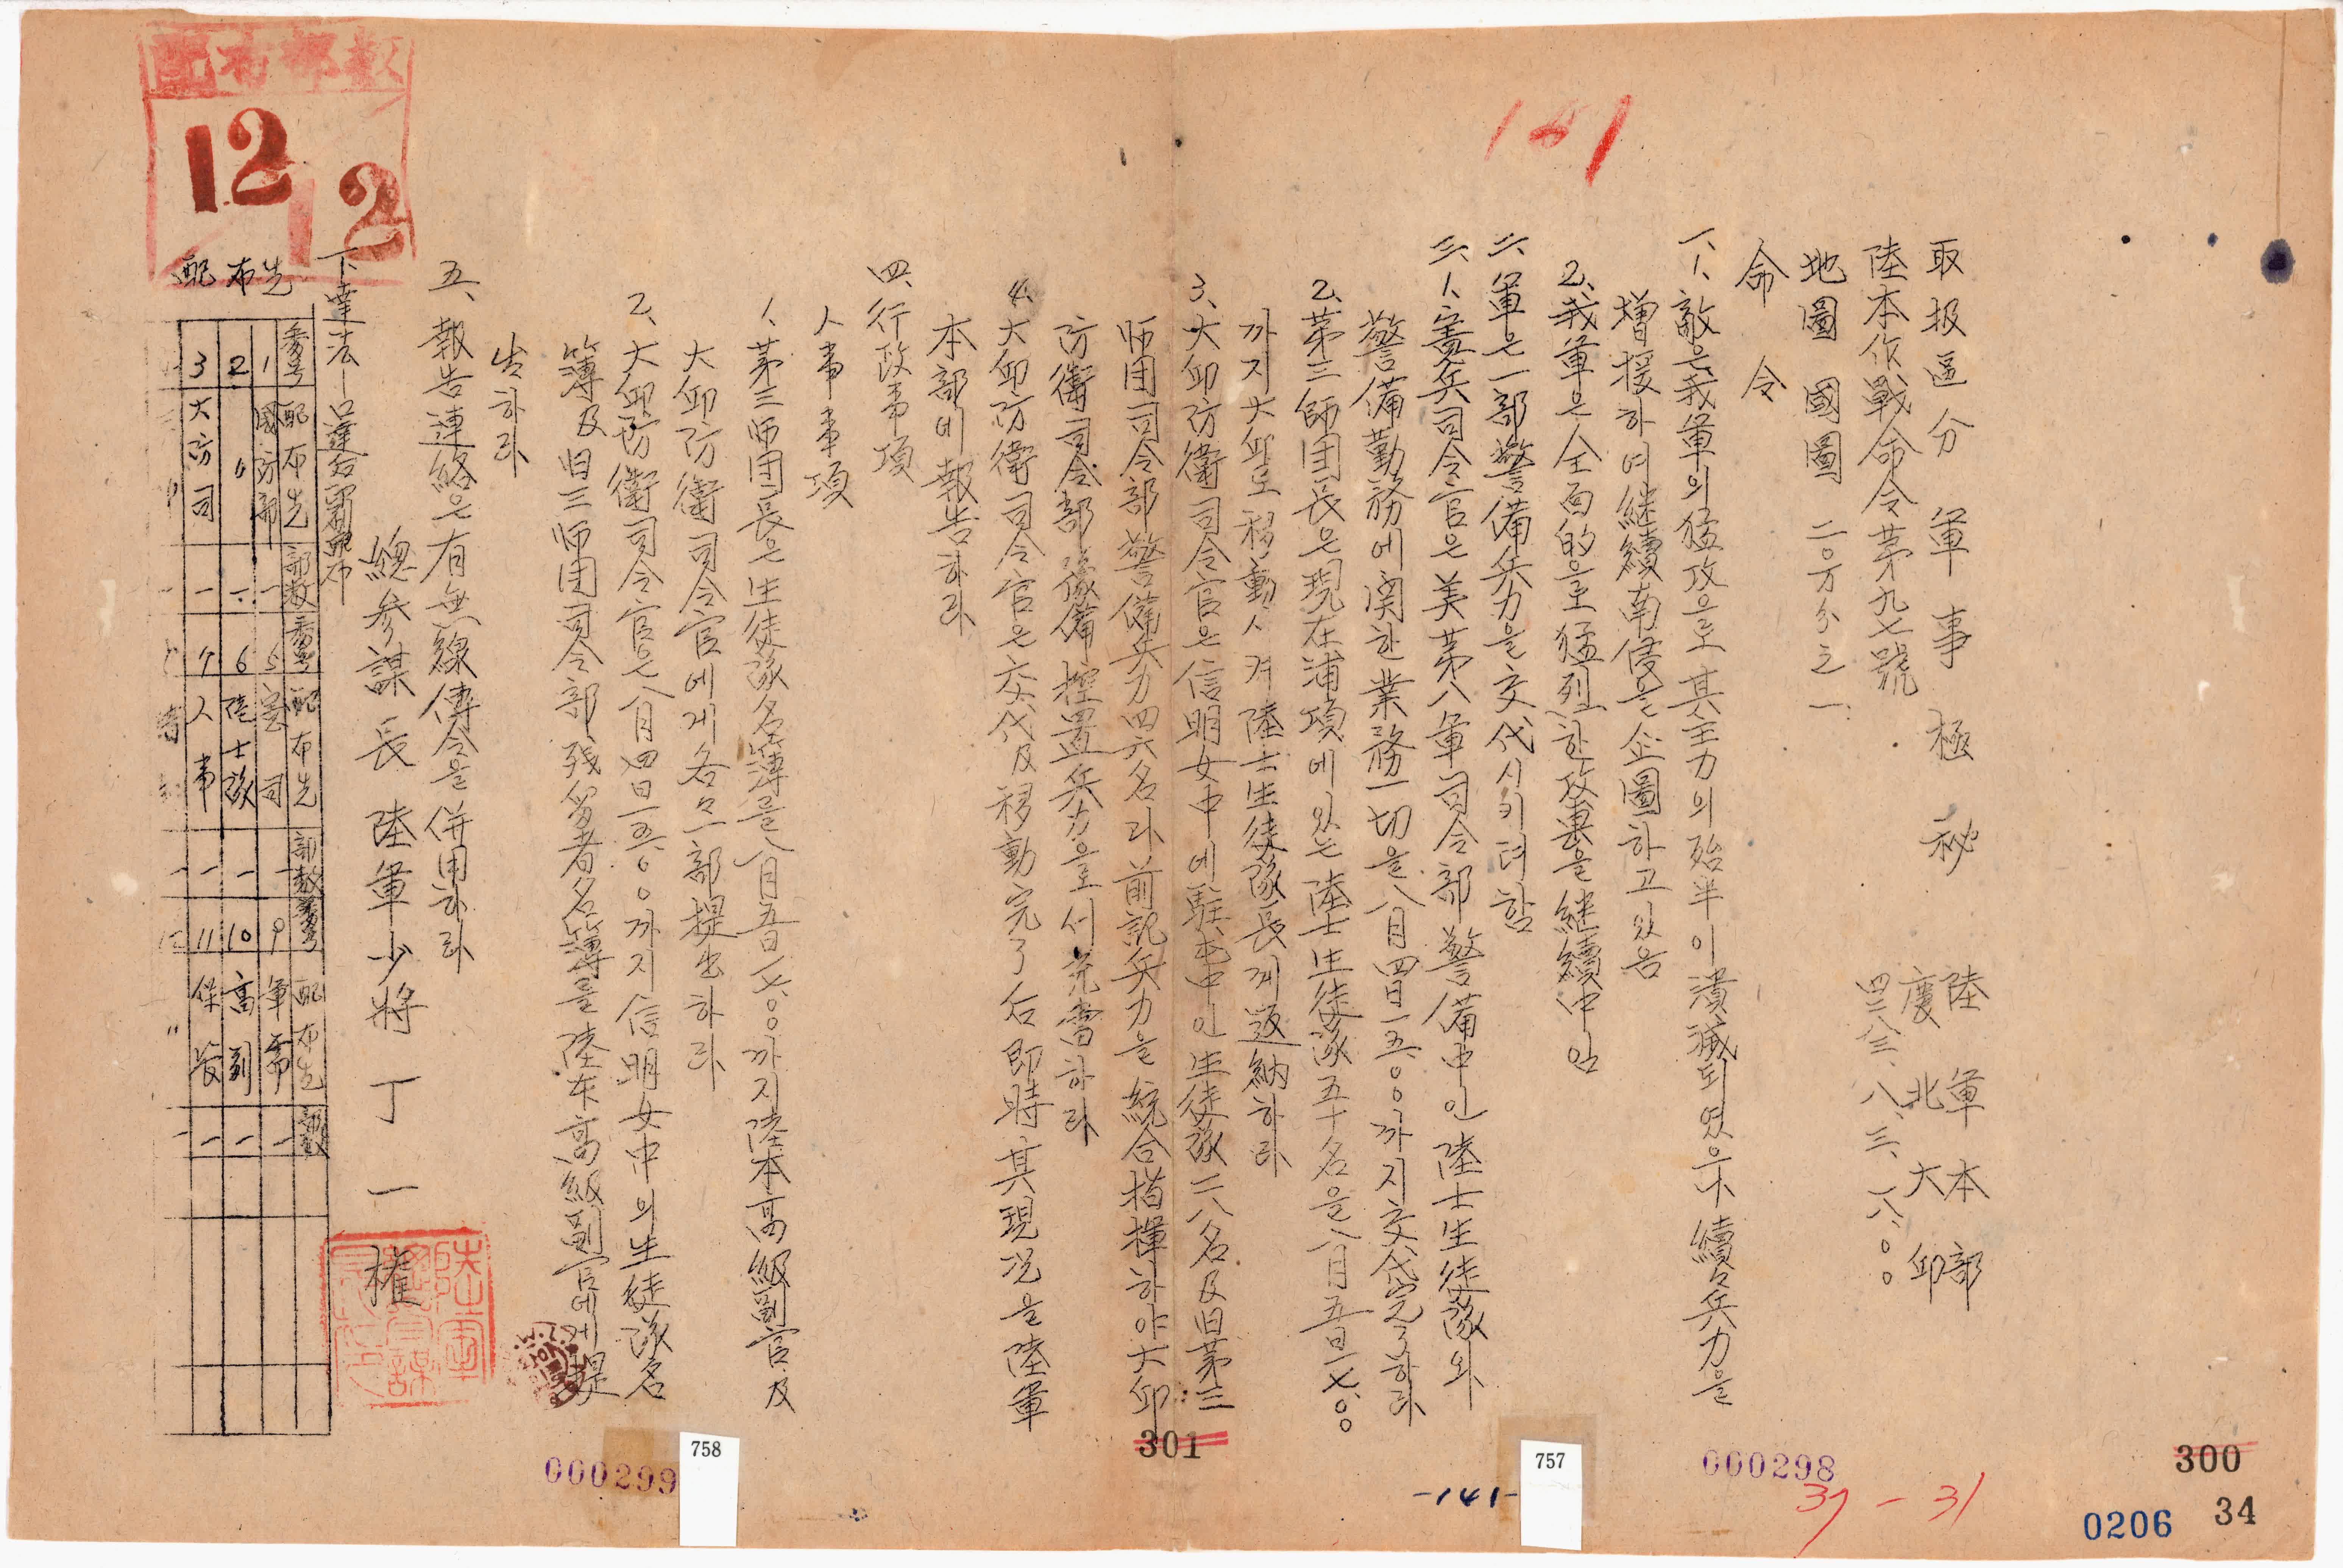 取扱區分 軍事極秘
陸軍本部
慶北大邱
四二八三、八、三、一八、〇〇
陸本作戰命令第九七號
地圖 國圖 二〇万分之一
命令
一、1、敵은我軍의猛攻으로其主力의殆半이潰滅되였으나續々兵力을
增援하여継續南侵을企圖하고있음
2、我軍은全面的으로猛烈한攻擊을継續中임
二、軍은一部警備兵力을交代시키려함
三、1、憲兵司令官은美第八軍司令部警備中인陸士生徒隊와
警備勤務에関한業務一切을八月四日一五、〇〇까지交代完了하라
2、第三師団長은現在浦項에있는陸士生徒隊五十名을八月五日一七、〇〇
까지大邱로移動시켜陸士生徒隊長게返納하라
3、大邱防衛司令官은信明女中에駐屯中인生徒隊二八名及旧第三
師団司令部警備兵力四六名과前記兵力을統合指揮하야大邱
防衛司令部豫備控置兵力으로서充當하라
4、大邱防衛司令官은交代及移動完了后即時其現況을陸軍
本部에報告하라
四、行政事項
人事事項
1、第三師団長은生徒隊名簿를八月五日一七、〇〇까지陸本高級副官及
大邱防衛司令官에게各々一部提出하라
2、大邱防衛司令官은八月四日一五、〇〇까지信明女中의生徒隊名
簿及旧三師団司令部殘留者名簿를陸本高級副官에게提
出하라
五、報告連絡은有無線傳令을併用하라
總參謀長 陸軍少將 丁一權
下達法—口達后習配布
配布先
番号 配布先 部数 番号 配布先 部数 番号 配布先 部数
1 國防部 一 5 憲司 一 9 軍需 一
2 〃 一 6 陸士隊 一 10 高副 一
3 大防司 一 7 人事 一 11 作敎 一
配布部數
12
12
141
758
757
301
300
000299
000298
-141-
37-31
0206
34